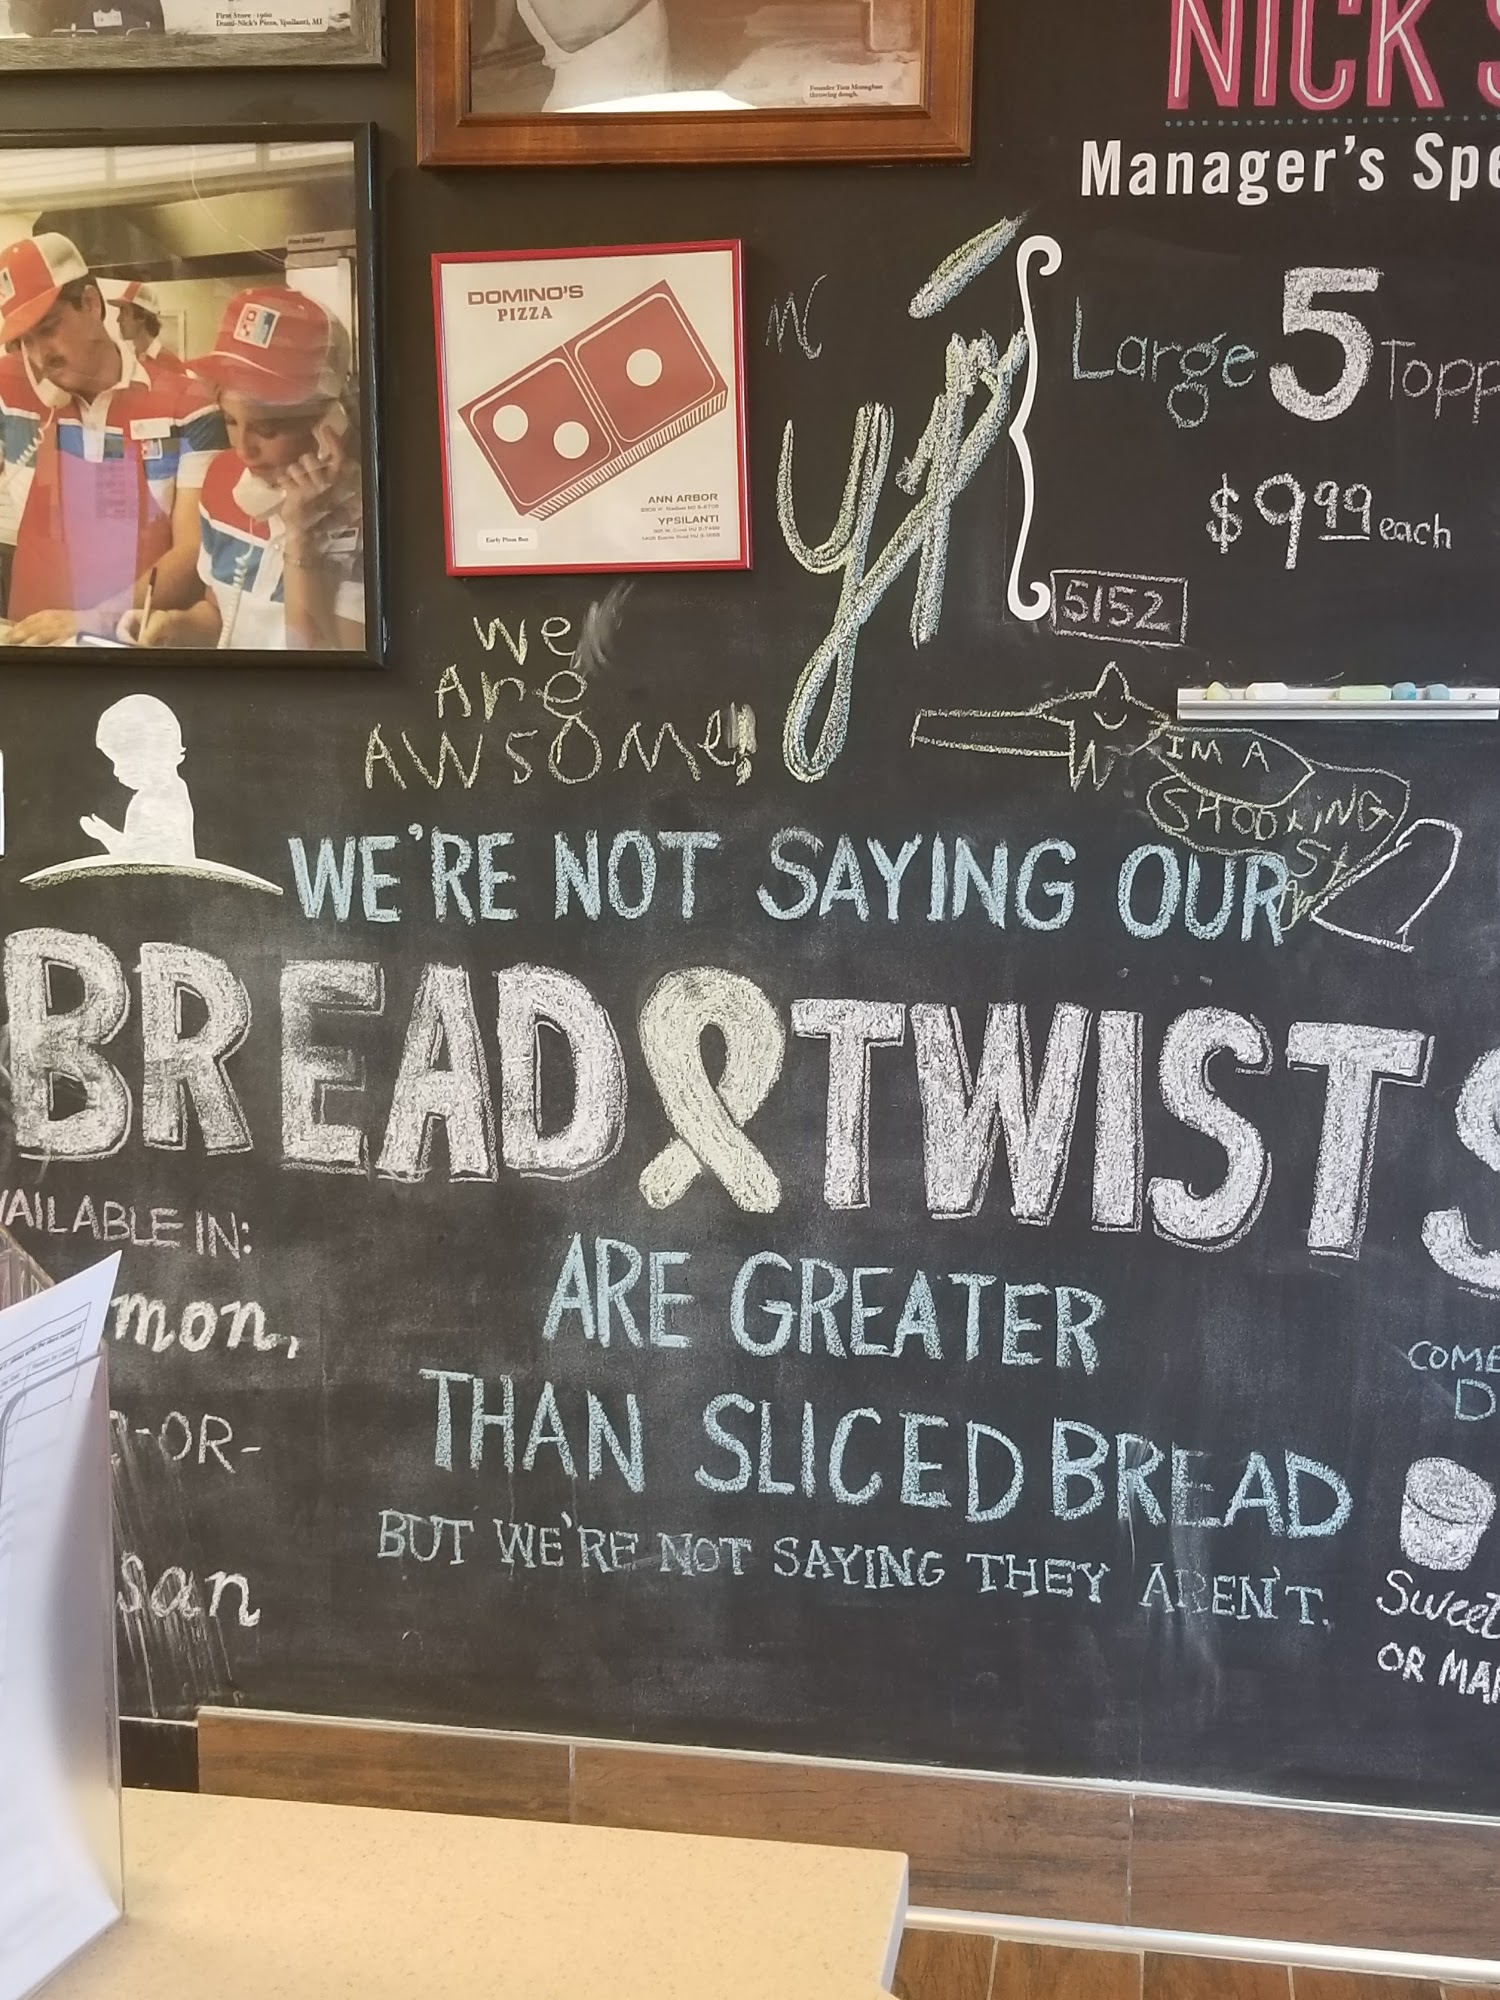 First Store - 1960
Domi-Nick's Pizza, Ypsilanti, MI
Founder Tom Monaghan
throwing dough.
NICK'S
Manager's Spe
DOMINO'S
PIZZA
ANN ARBOR
YPSILANTI
Early Pizza Box
Large 5 Topp
$9.99 each
5152
We
Are
AWSOMe!
I'M A
SHOOxiNG
St
WE'RE NOT SAYING OUR
BREAD TWISTS
AILABLE IN:
mon,
-OR-
san
ARE GREATER
THAN SLICED BREAD
BUT WE'RE NOT SAYING THEY AREN'T.
COME
D
Sweet
OR MAR